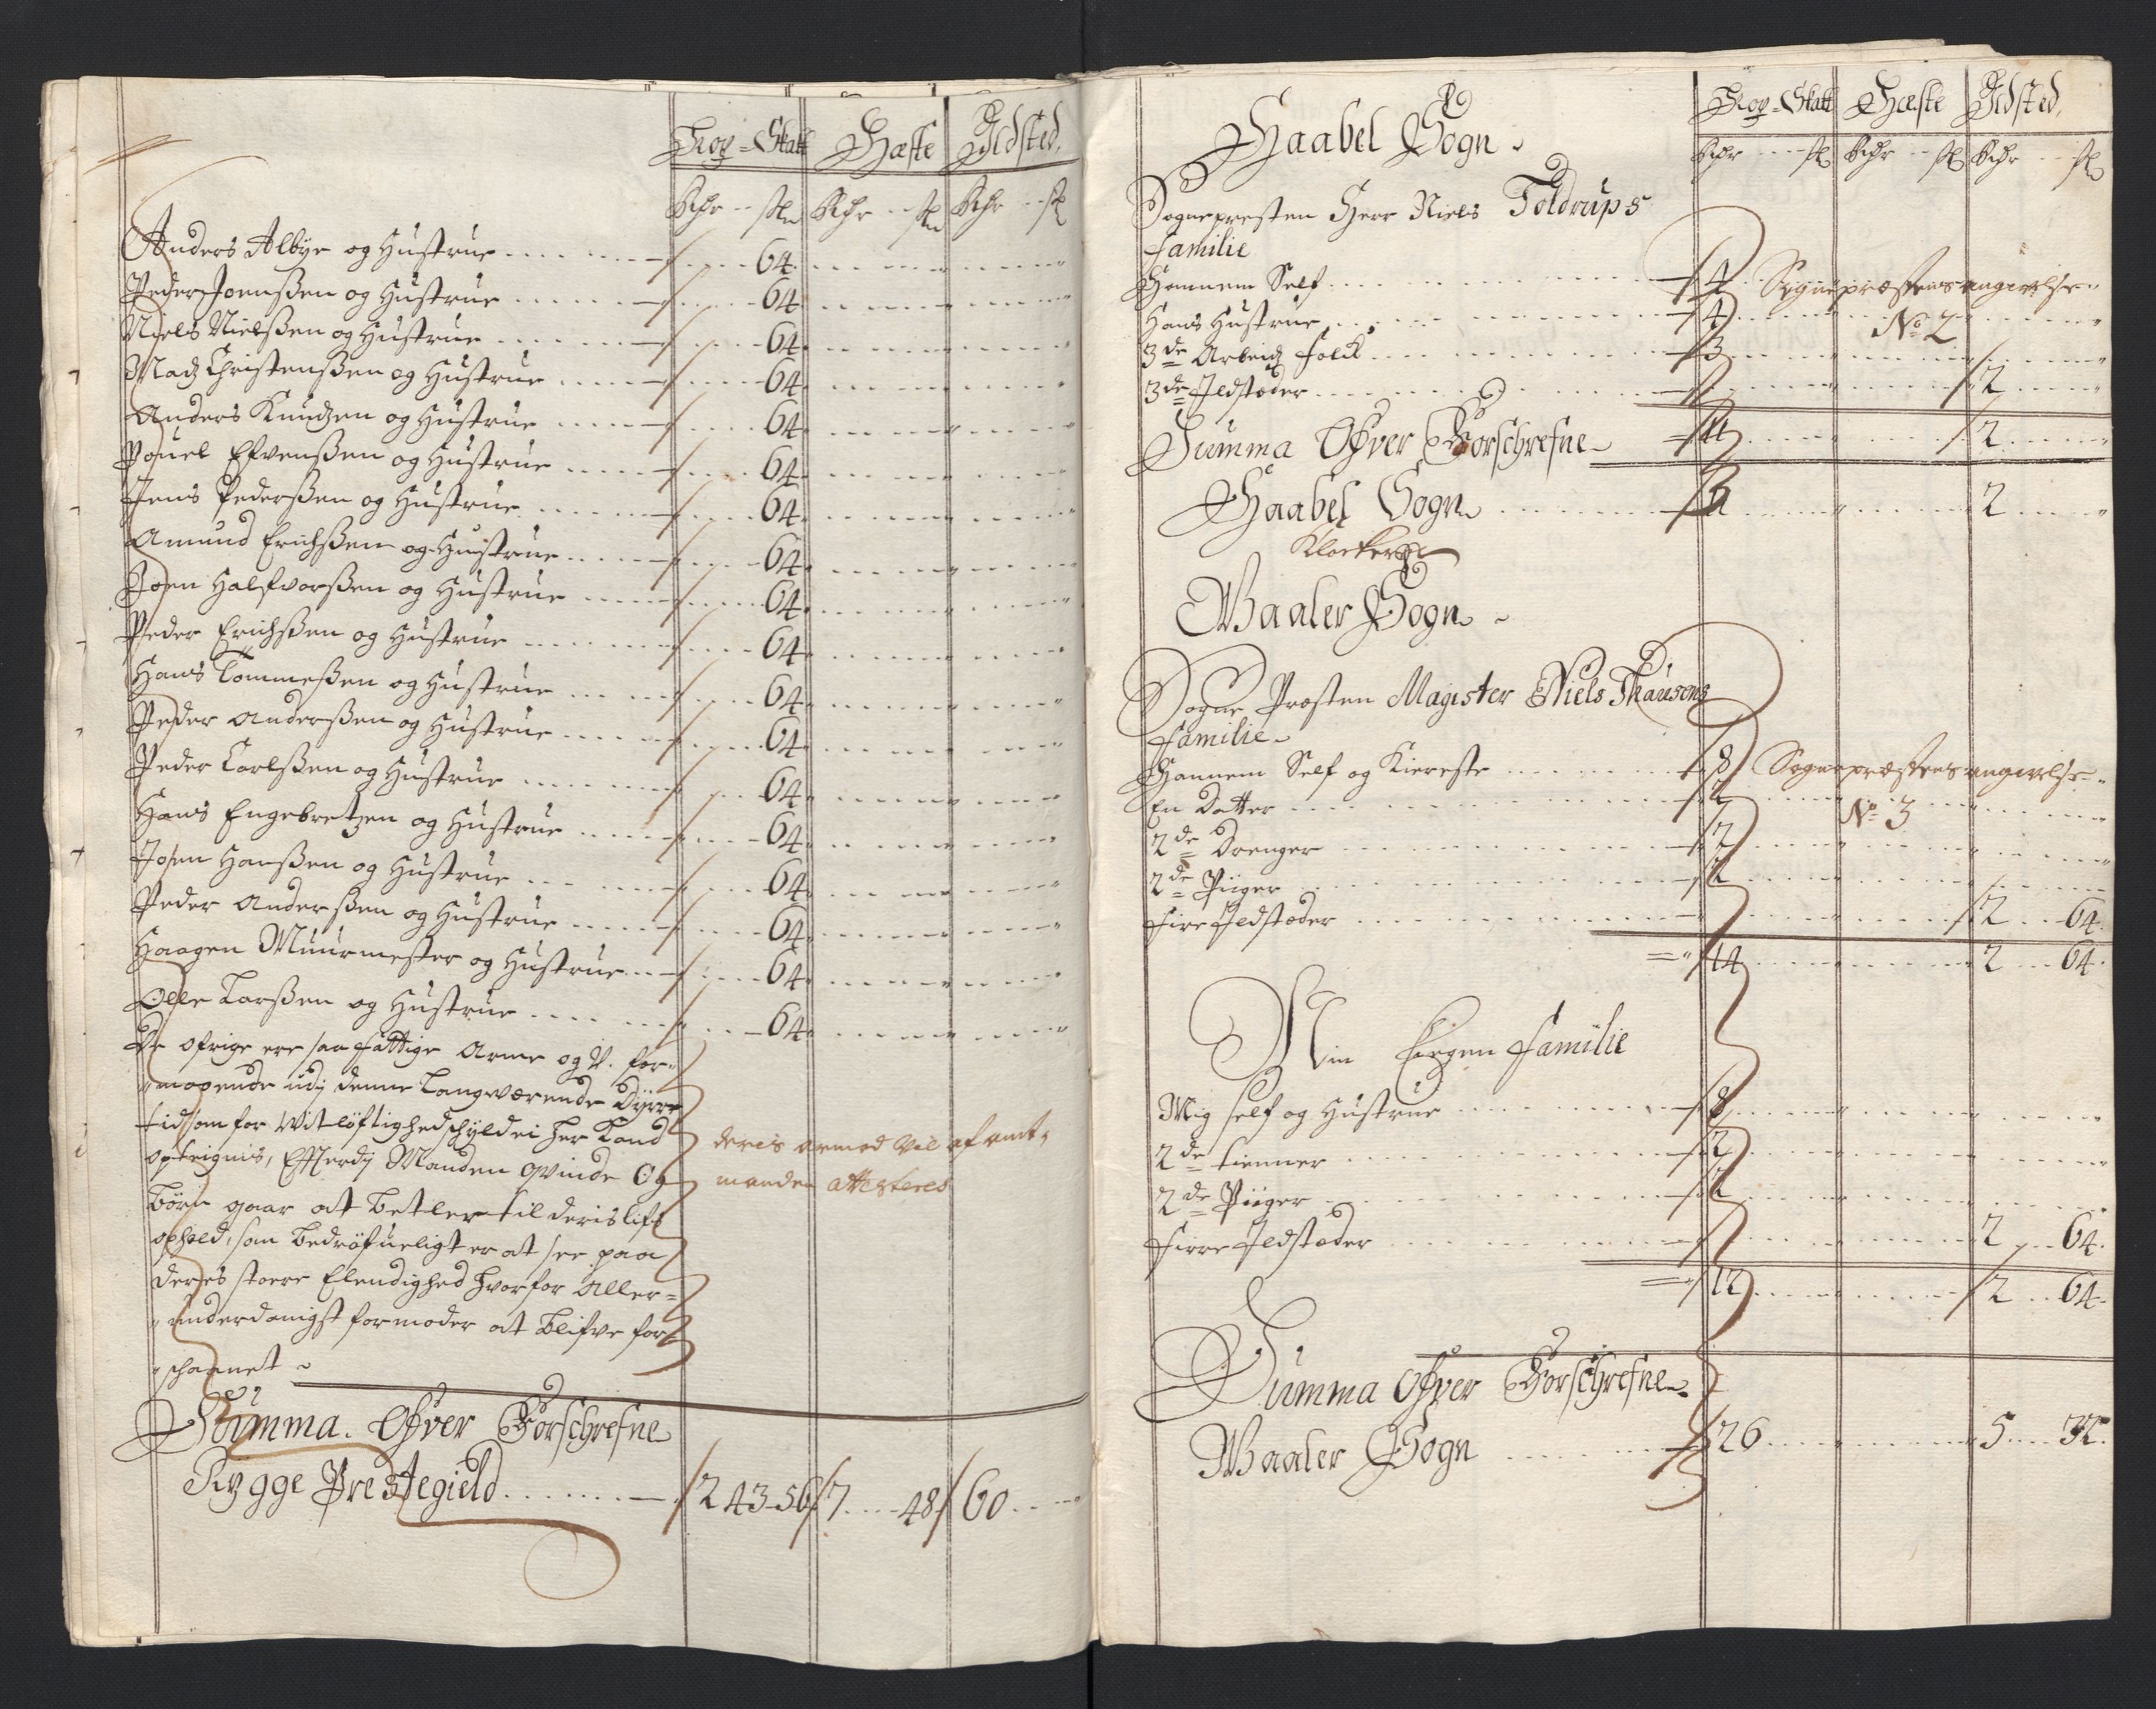 Kop-Skatt Hæste Ildsted.
Rdr ß Rdr ß Rdr ß
Anders Albye og Hustrue 64
Peder Joenßen og Hustrue 64
Niels Nielsßen og Hustrue 64
Madz Christenßen og Hustrue 64
Anders Knudzen og Hustrue 64
Pouel Efvenßen og Hustrue 64
Jens Pederßen og Hustrue 64
Amund Erichßen og Hustrue 64
Joen Halfvorßen og Hustrue 64
Peder Erichßen og Hustrue 64
Hans Tommeßen og Hustrue 64
Peder Anderßen og Hustrue 64
Peder Carlßen og Hustrue 64
Hans Engebretzen og Hustrue 64
Johen Hanßen og Hustrue 64
Peder Anderßen og Hustrue 64
Haagen Muurmester og Hustrue 64
Olle Larßen og Hustrue 64
De ofrige ere saa fattige Arme og V. for-
mogende udj denne Langværende Dyrre
tid som for Witløftighed schyld ei her Kand
opteignis, Efterdj Manden Qvinde Og
Børn gaar at Betler til deris lifs
ophold, som Bedrøfueligt er at see paa
deres stoere Elendighed hvorfor Aller-
underdanigst formoder at Blifve for-
schaanet
deris armod vil af amt-
manden attesteres
Summa. Ofver Forschrefne
Rygge Prestegield 243-56 7 48 60

Haabel Sogn
Kop-Skatt Hæste Ildsted.
Rdr ß Rdr ß Rdr ß
Sognepresten Herr Niels Toldrups
familie
Hannem Self 4 Sognepræstens angivelse
Hans Hustrue 4 No 2
3de Arbeidz folck 3
3de Ildstæder 2
Summa Ofver Forschrefne 11 2
Haabel Sogn 2
Klocker
Waaler Sogn
Sogne Præsten Magister Niels Thausens
familie
Hannem Self og Kiereste 8 Sognepræstens angivelse
En Datter 2 No 3
2de Drenger 2
2de Piiger 2
fire Ildstæder 2 64
14 2 64
Min Eigen familie
Mig self og Hustrue 8
2de tienner 2
2de Piiger 2
firre Ildstæder 2 64
12 2 64
Summa Ofver Forschrefne
Waaler Sogn 26 5 32